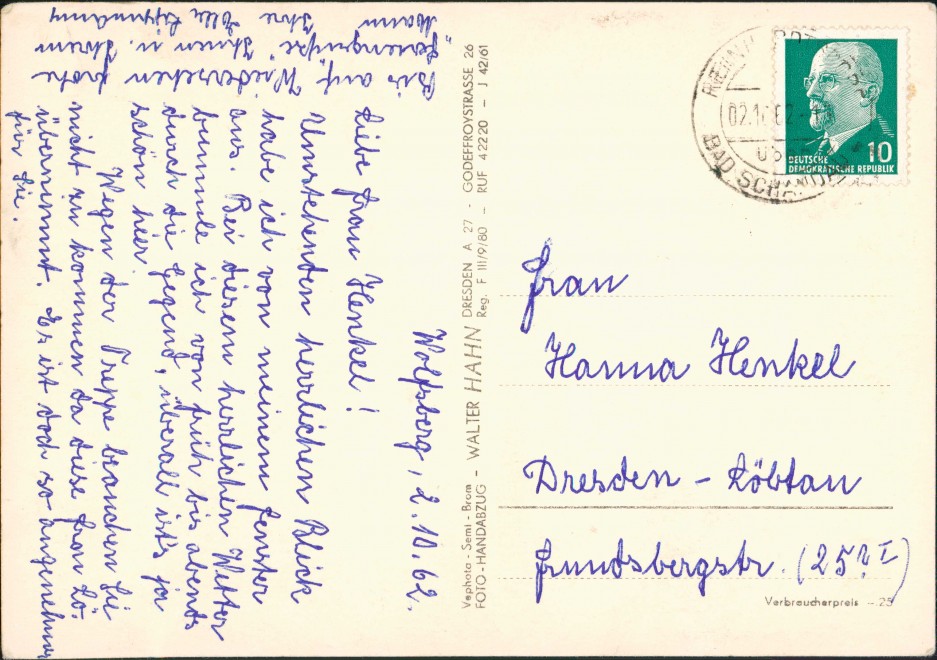 Wolfsberg, 2.10.62.
Liebe Frau Henkel!
Umstehenden herrlichen Blick
habe ich von meinem Fenster
aus. Bei diesem herrlichen Wetter
bummle ich von früh bis abends
durch die Gegend, überall ist's ja
schön hier.
Wegen der Treppe brauchen Sie
nicht zu kommen da diese Frau Lö-
übernimmt. Es ist doch so angenehmer
für Sie.
Bis auf Wiedersehen frohe
Feriengrüße Ihnen u. Ihrem
Mann Ihre
Vephota - Semi - Brom
FOTO-HANDABZUG - WALTER HAHN DRESDEN A 27 - GODEFFROYSTRASSE 26
Reg. F III/9/80 - RUF 42220 - J 42/61
BAD SCHANDAU
DEUTSCHE
DEMOKRATISCHE REPUBLIK
10
Frau
Hanna Henkel
Dresden - Löbtau
Verbraucherpreis -.25